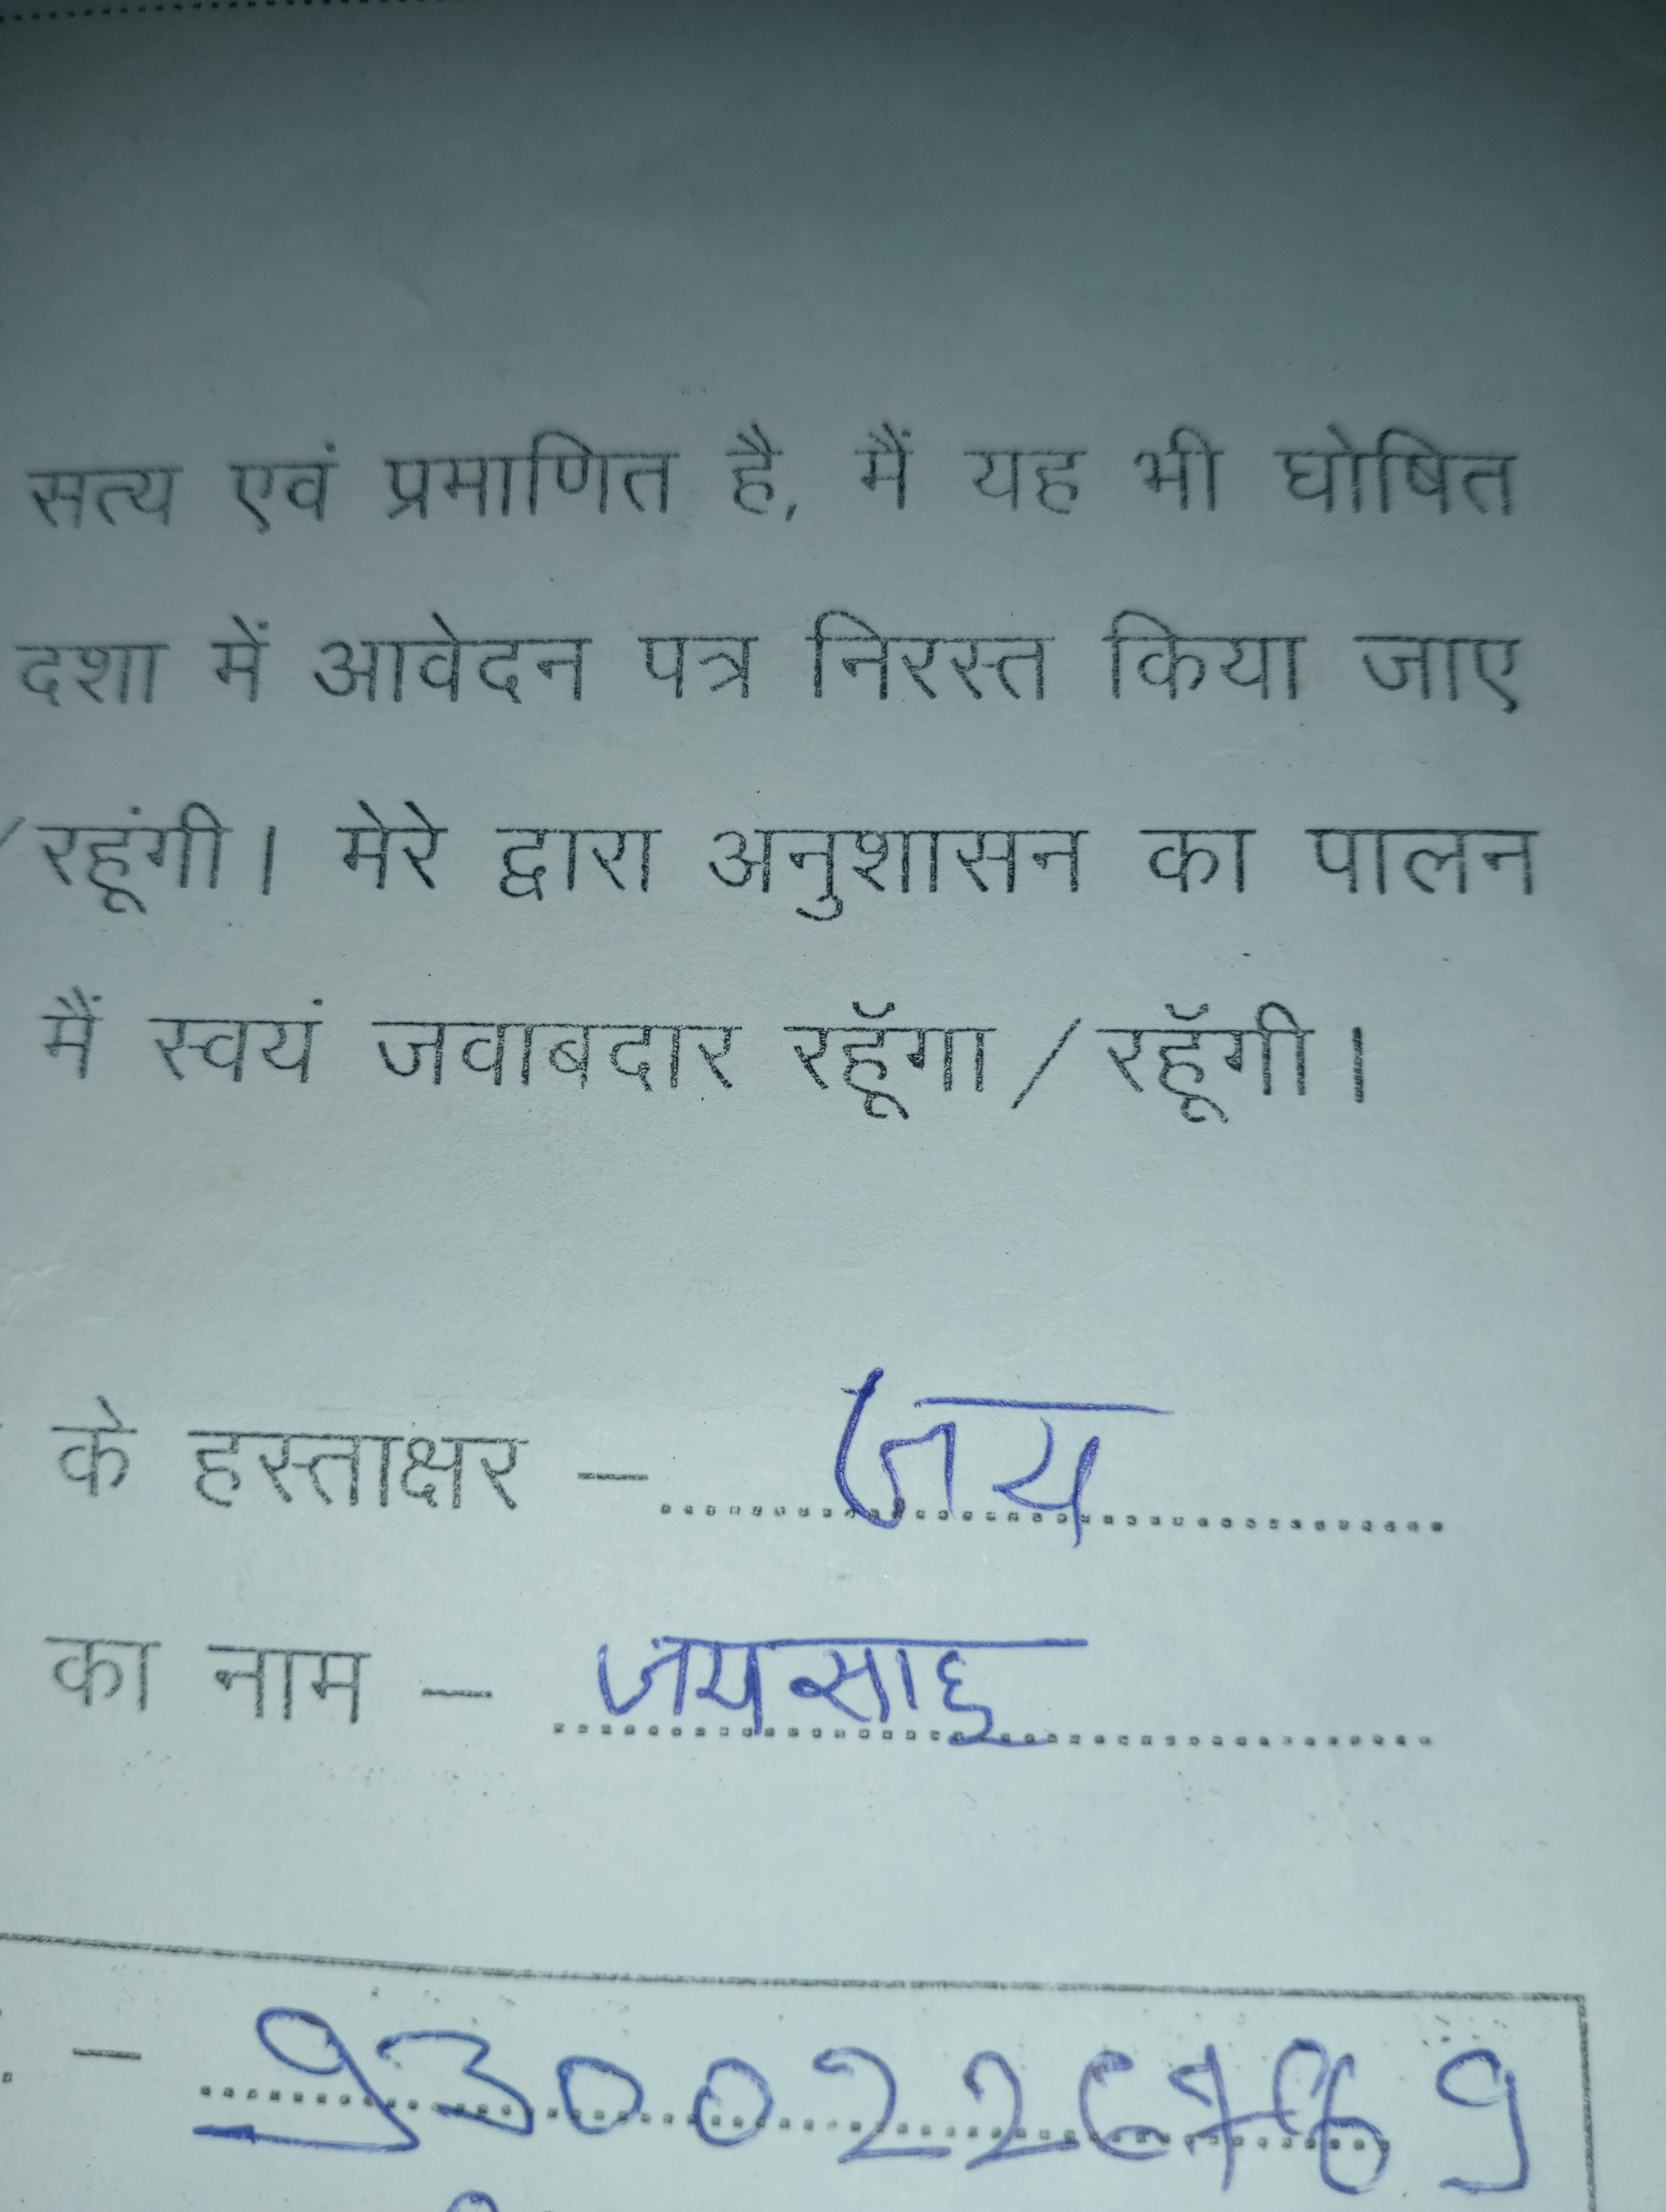 सत्य एवं प्रमाणित है, मैं यह भी घोषित
दशा में आवेदन पत्र निरस्त किया जाए
/रहूंगी। मेरे द्वारा अनुशासन का पालन
मैं स्वयं जवाबदार रहूॅगा/रहूॅगी।
के हस्ताक्षर – जय
का नाम – जय साहू
. – 9300226769